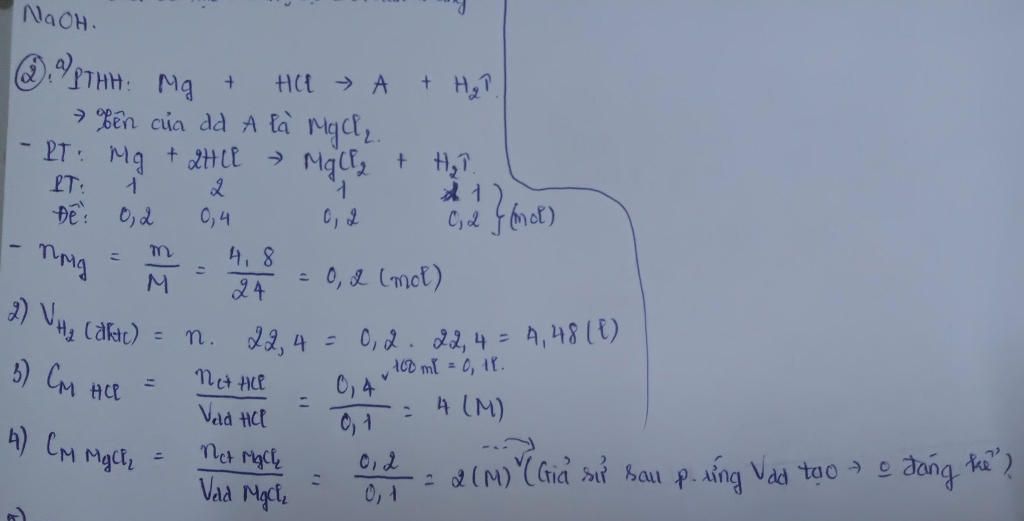 NaOH.
②. a) PTHH: Mg + HCl → A + H₂↑.
→ Tên của dd A là MgCl₂.
- PT: Mg + 2HCl → MgCl₂ + H₂↑.
PT: 1 2 1 1
Đề: 0,2 0,4 0,2 0,2 } (mol)
- nMg = m/M = 4,8/24 = 0,2 (mol)
2) V H₂ (đktc) = n. 22,4 = 0,2. 22,4 = 4,48 (l)
100 ml = 0,1l.
3) CM HCl = nct HCl/Vdd HCl = 0,4/0,1 = 4 (M)
4) CM MgCl₂ = nct MgCl₂/Vdd MgCl₂ = 0,2/0,1 = 2 (M) (Giả sử sau p. ứng Vdd tạo → đáng kể)